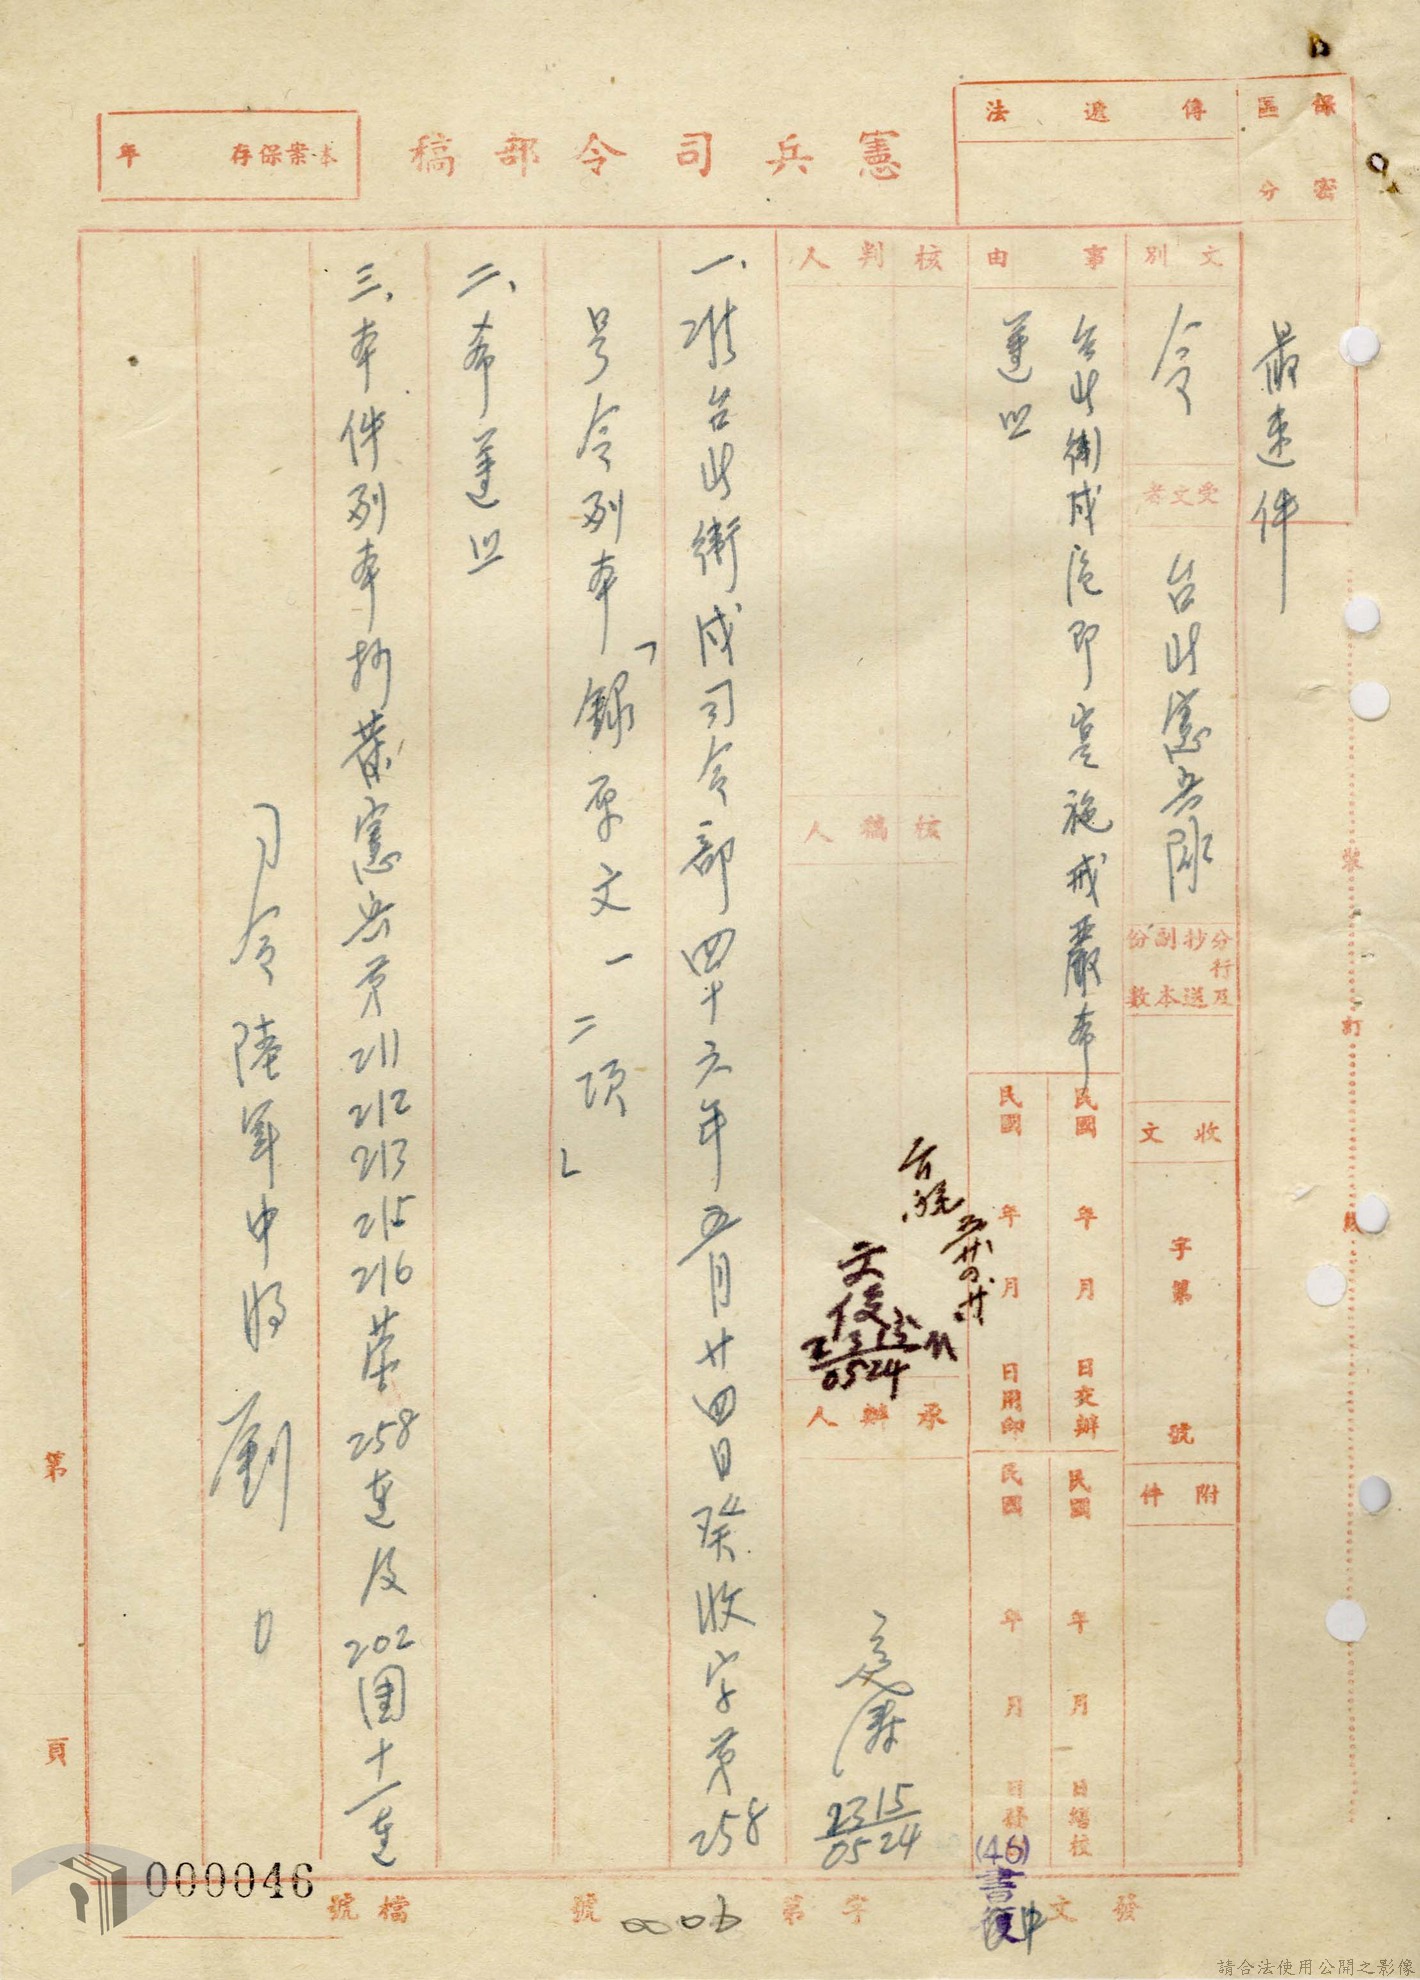 保密
區分
傳遞法
憲兵司令部稿
本案保存 年
最速件
文別
令
受文者
台北憲兵隊
分行及
抄送
副本
份數
收文
字第 號
附件
事由
台北衛戍區即實施戒嚴希
遵照
民國 年 月 日交辦
民國 年 月 日繕校
民國 年 月 日用印
民國 年 月
核判人
核稿人
文俊
2315
0524
承辦人
2315
0524
一、准台北衛戍司令部四十六年五月廿四日癸收字第258
号令列本「錄原文一二項」
二、希遵照
三、本件列本抄發憲兵第211 212 213 215 216 營 258連及202團十一連
司令陸軍中將劉
裝 訂 線
第 頁
發文
(46)
字第 0006 號
檔號
000046
請合法使用公開之影像